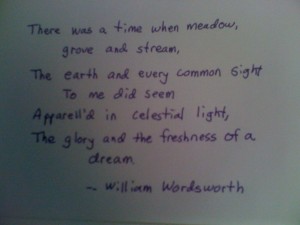 There was a time when meadow,
grove and stream,
The earth and every common Sight
To me did seem
Apparell'd in celestial light,
The glory and the freshness of a
dream
~ William Wordsworth